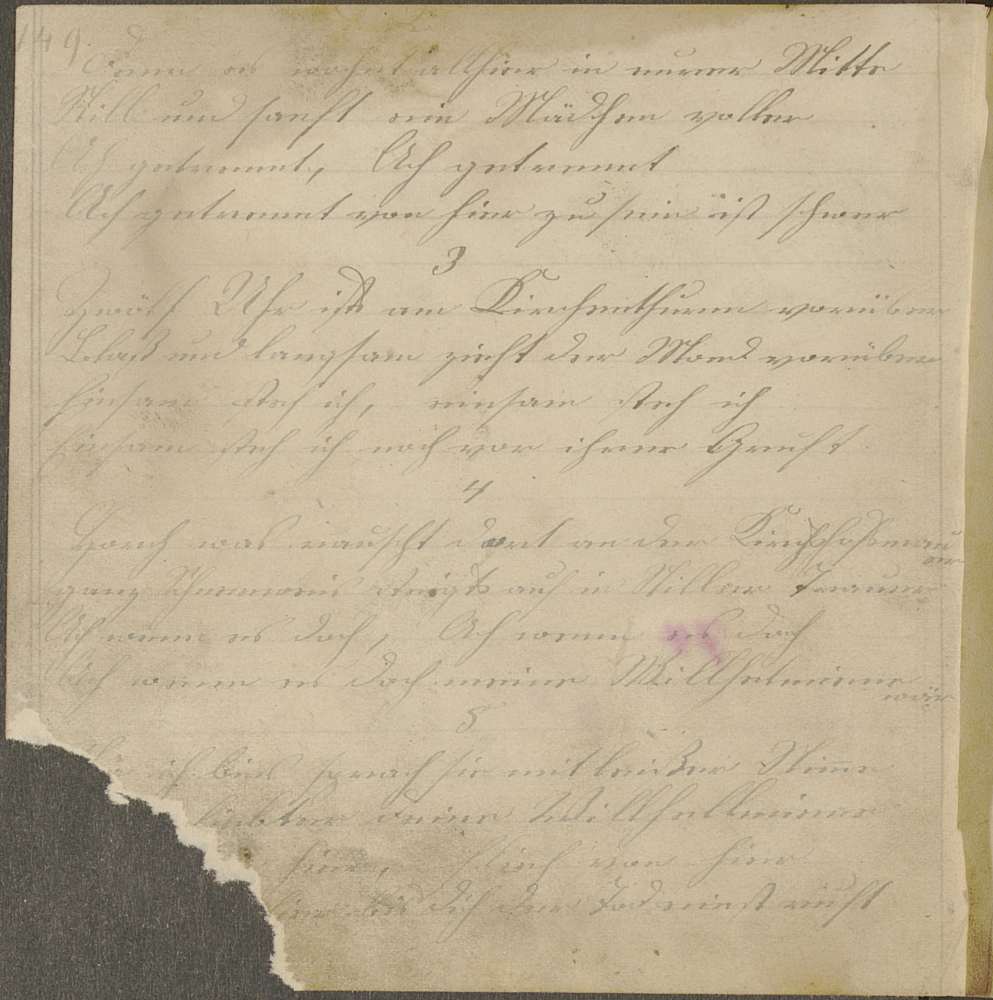 149.
Denn es wohnt allhier in eurer Mitte
Still und sanft ein Mädchen voller
Ach getrennt, Ach getrennt
Ach getrennt von hier zu sein ist schwer
3
Zwölf Uhr ists am Kirchenthurm vorüber
Blaß und langsam zieht der Mond vorüber
Einsam steh ich, einsam steh ich
Einsam steh ich noch vor ihrer Gruft
4
Horch was rauscht dort an der Kirchhofsmauer
ganz Schneeweis steigts auf in Stiller Trauer
Ach wenn es doch, Ach wenn es doch
Ach wenn es doch meine Willhelmiene wär
5
ich bins sprach sie mit leiser Stimme
liebter deine Willhellmiene
hier, flieh von hier
hier bis dich der Tod einst ruft